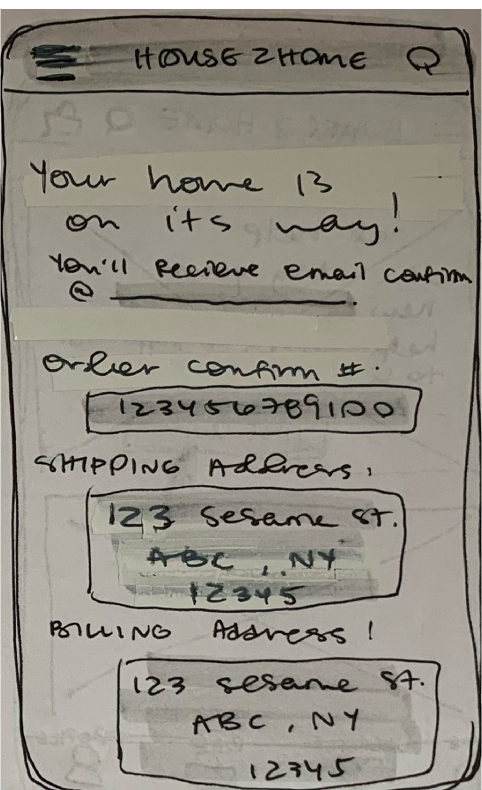 HOUSE 2 HOME
Your home is
on its way!
You'll Recieve email confirm
@ ____________.
order confirm #.
123456789100
SHIPPING Address:
123 sesame st.
ABC, NY
12345
BILLING Address:
123 sesame st.
ABC, NY
12345